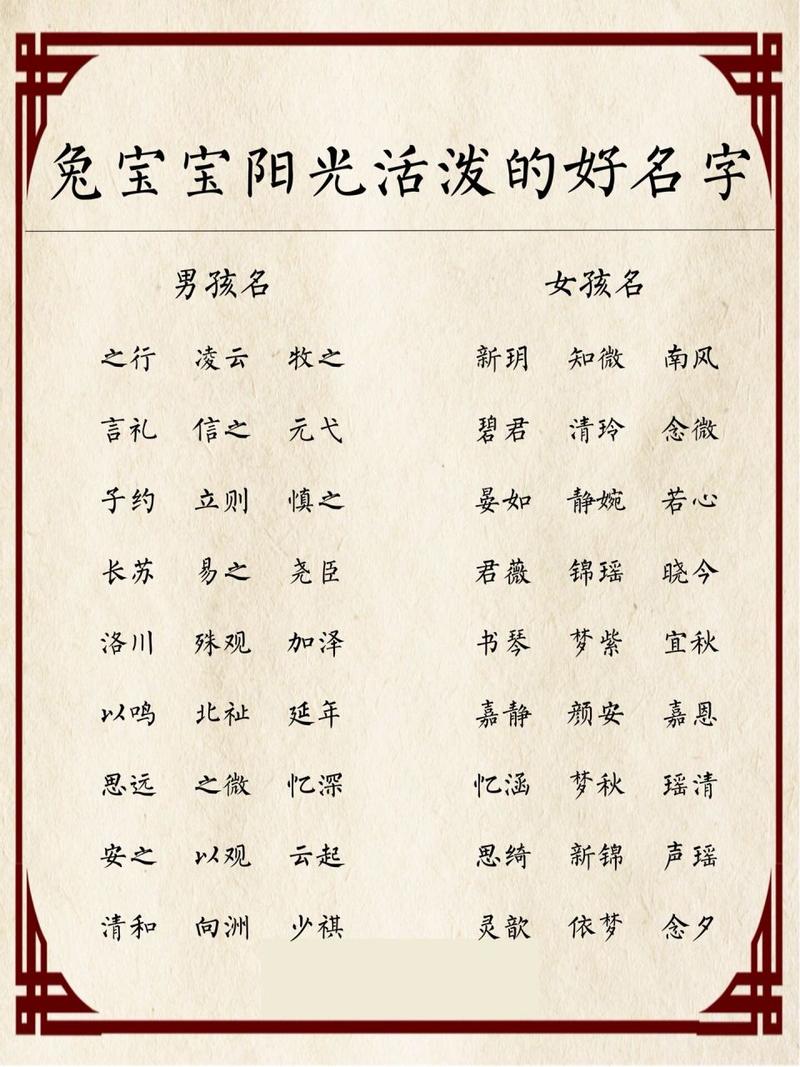 兔宝宝阳光活泼的好名字
男孩名 女孩名
之行 凌云 牧之 新玥 知微 南风
言礼 信之 元弋 碧君 清玲 念微
子约 立则 慎之 晏如 静婉 若心
长苏 易之 尧臣 君薇 锦瑶 晓今
洛川 殊观 加泽 书琴 梦紫 宜秋
以鸣 北祉 延年 嘉静 颜安 嘉恩
思远 之微 忆深 忆涵 梦秋 瑶清
安之 以观 云起 思绮 新锦 声瑶
清和 向洲 少祺 灵歆 依梦 念夕